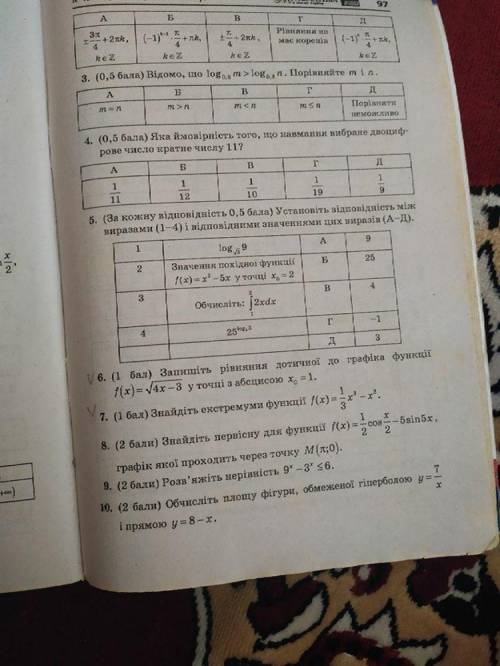 97
А Б В Г Д
±3π/4+2πk, k∈Z (-1)^(k+1)·π/4+πk, k∈Z ±π/4+2πk, k∈Z Рівняння не має коренів (-1)^k π/4+πk, k∈Z
3. (0,5 бала) Відомо, що log m > log n. Порівняйте m і n.
А Б В Г Д
m=n m>n m<n m≤n Порівняти неможливо
4. (0,5 бала) Яка ймовірність того, що навмання вибране двоциф-
рове число кратне числу 11?
А Б В Г Д
1/11 1/12 1/10 1/19 1/9
5. (За кожну відповідність 0,5 бала) Установіть відповідність між
виразами (1–4) і відповідними значеннями цих виразів (А–Д).
1 log_√3 9 А 9
2 Значення похідної функції f(x)=x²-5x у точці x₀=2 Б 25
3 Обчисліть: ∫₁² 2xdx В 4
4 25^(log₅3) Г -1
Д 3
6. (1 бал) Запишіть рівняння дотичної до графіка функції
f(x)=√(4x-3) у точці з абсцисою x₀=1.
7. (1 бал) Знайдіть екстремуми функції f(x)=1/3 x³-x².
8. (2 бали) Знайдіть первісну для функції f(x)=1/2 cos x/2 -5sin5x,
графік якої проходить через точку M(π;0).
9. (2 бали) Розв'яжіть нерівність 9^x-3^x≤6.
10. (2 бали) Обчисліть площу фігури, обмеженої гіперболою y=7/x
і прямою y=8-x.
x/2,